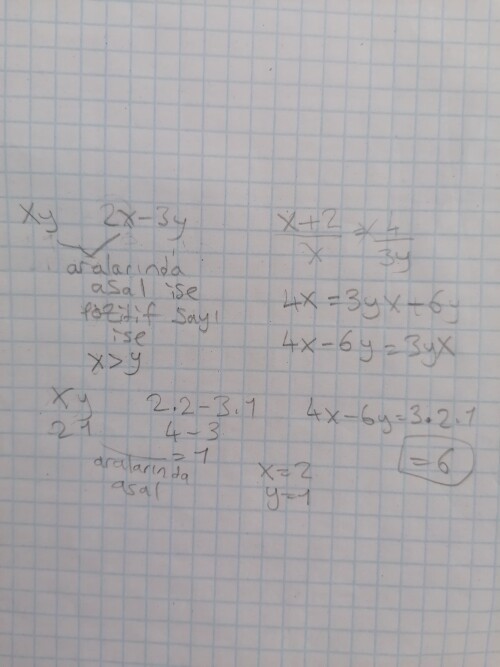 xy 2x-3y
aralarında
asal ise
pozitif sayı
ise
x>y
xy 2.2-3.1
21 4-3
=1
aralarında
asal
x+2/x = 4/3y
4x=3yx+6y
4x-6y=3yx
4x-6y=3.2.1
=6
x=2
y=1